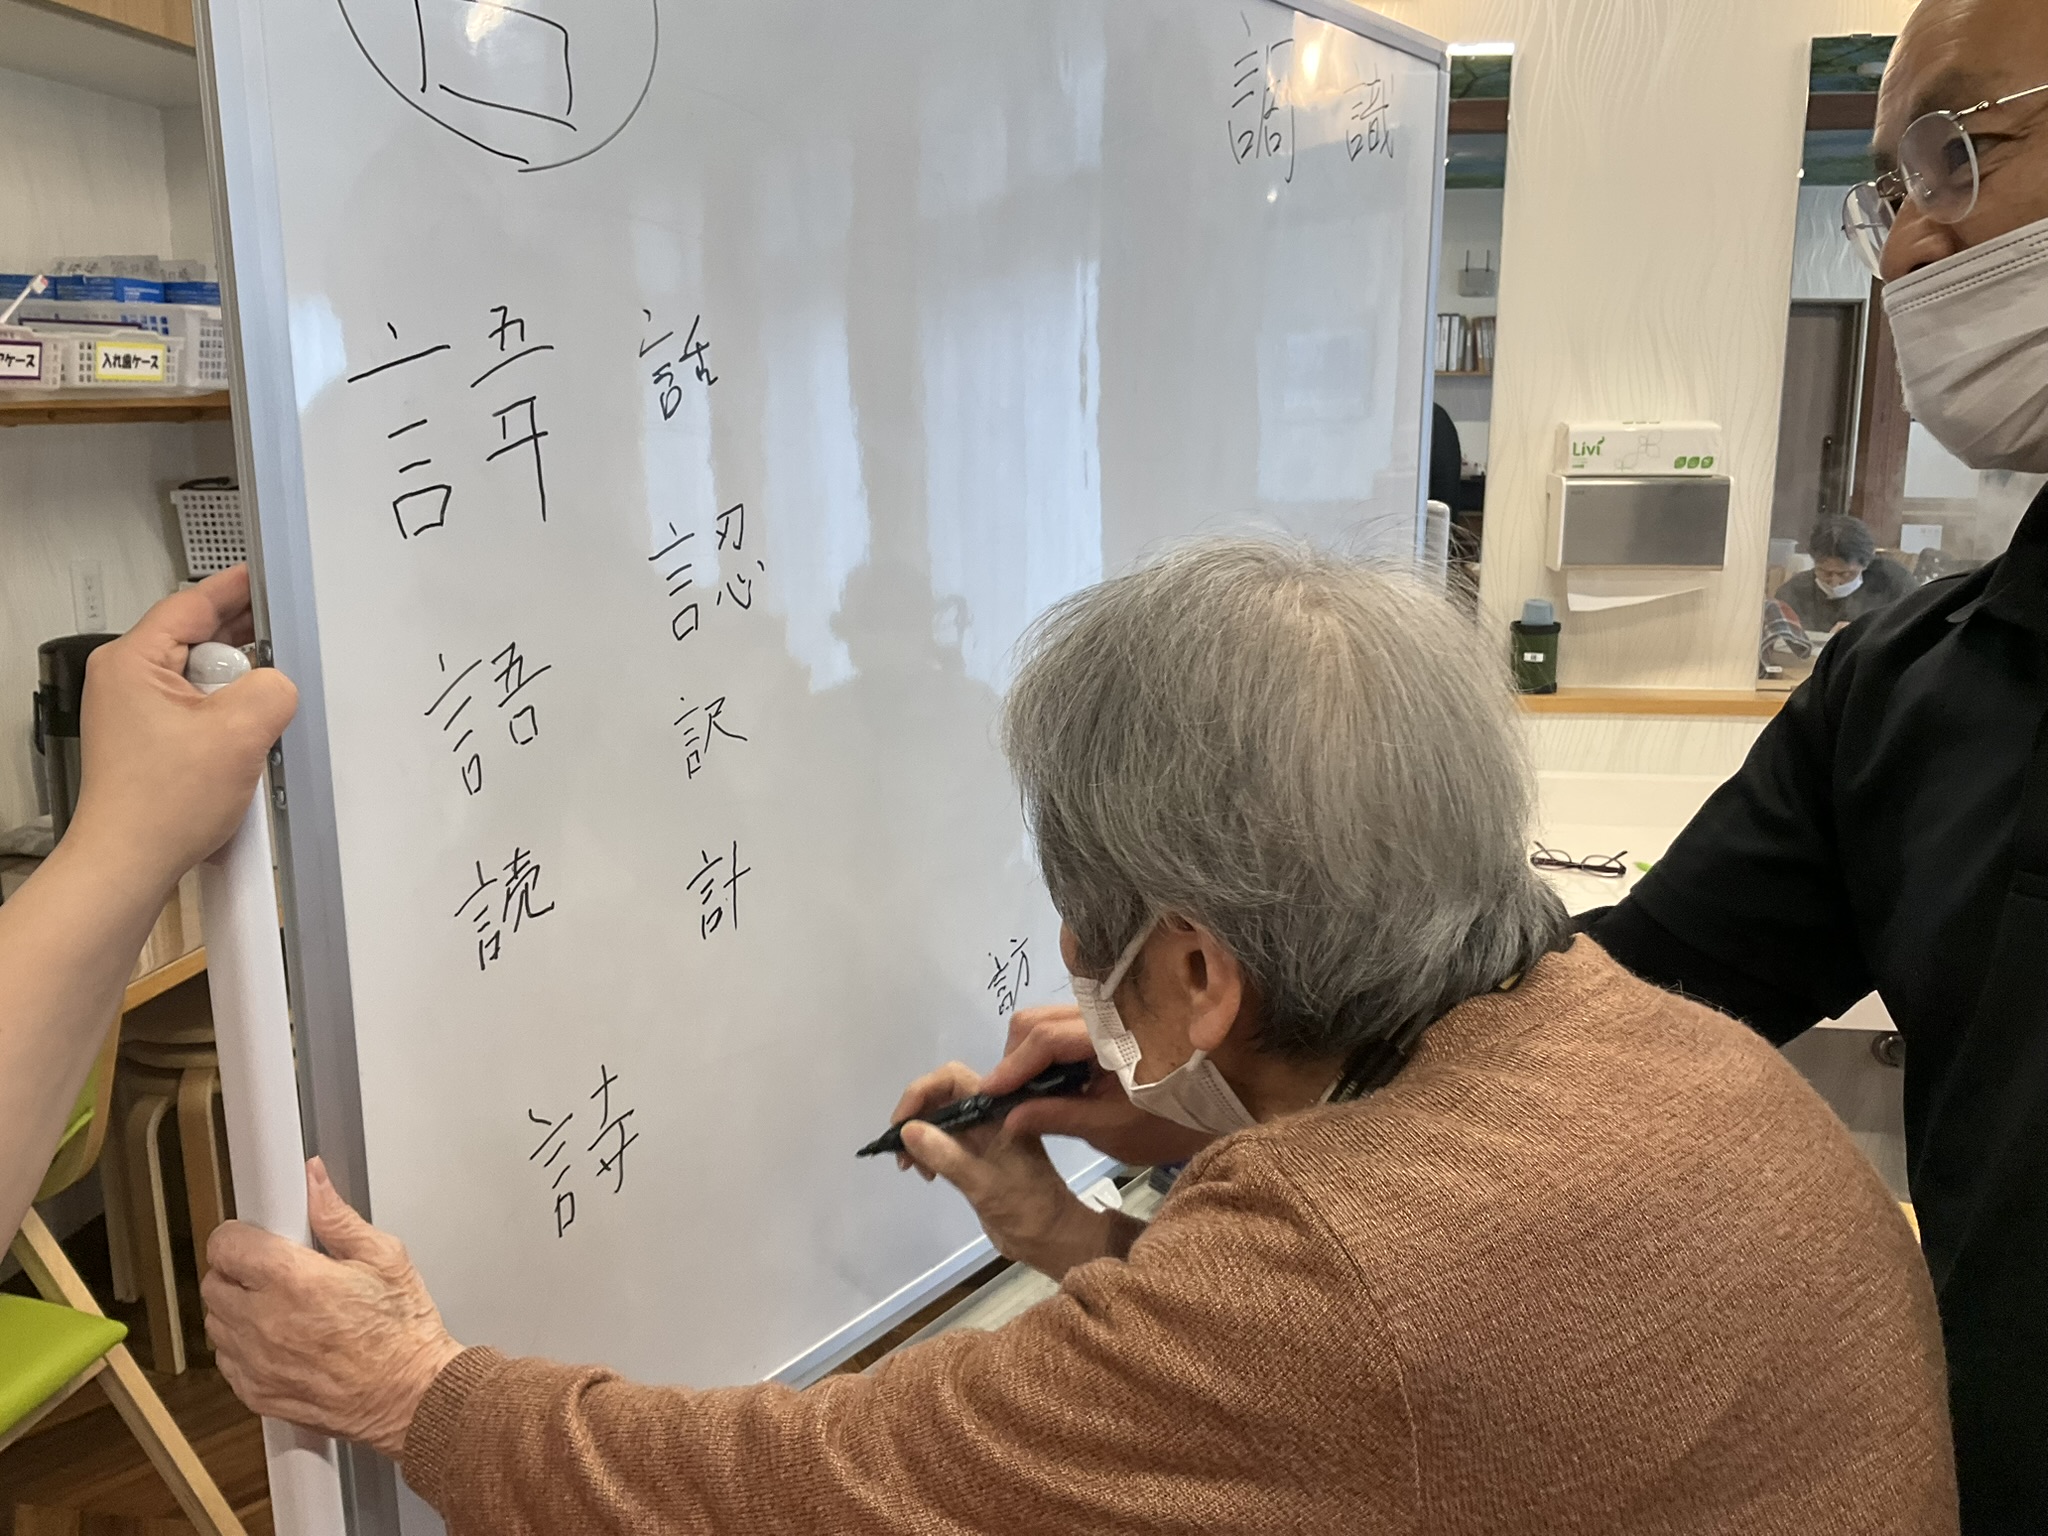 調 識
話
認
語
訳
読
計
訪
詩
入れ歯ケース
ケース
Livi